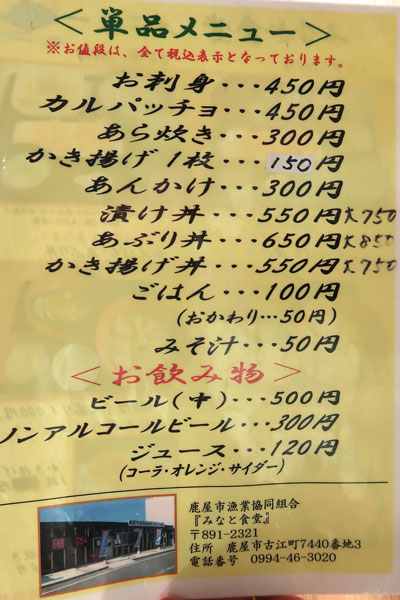 ＜単品メニュー＞
※お値段は、全て税込表示となっております。
お刺身・・・450円
カルパッチョ・・・450円
あら炊き・・・300円
かき揚げ1枚・・・150円
あんかけ・・・300円
漬け丼・・・550円大750
あぶり丼・・・650円大850
かき揚げ丼・・・550円大750
ごはん・・・100円
(おかわり…50円)
みそ汁・・・50円
＜お飲み物＞
ビール(中)・・・500円
ノンアルコールビール・・・300円
ジュース・・・120円
(コーラ・オレンジ・サイダー)
鹿屋市漁業協同組合
『みなと食堂』
〒891-2321
住所 鹿屋市古江町7440番地3
電話番号 0994-46-3020